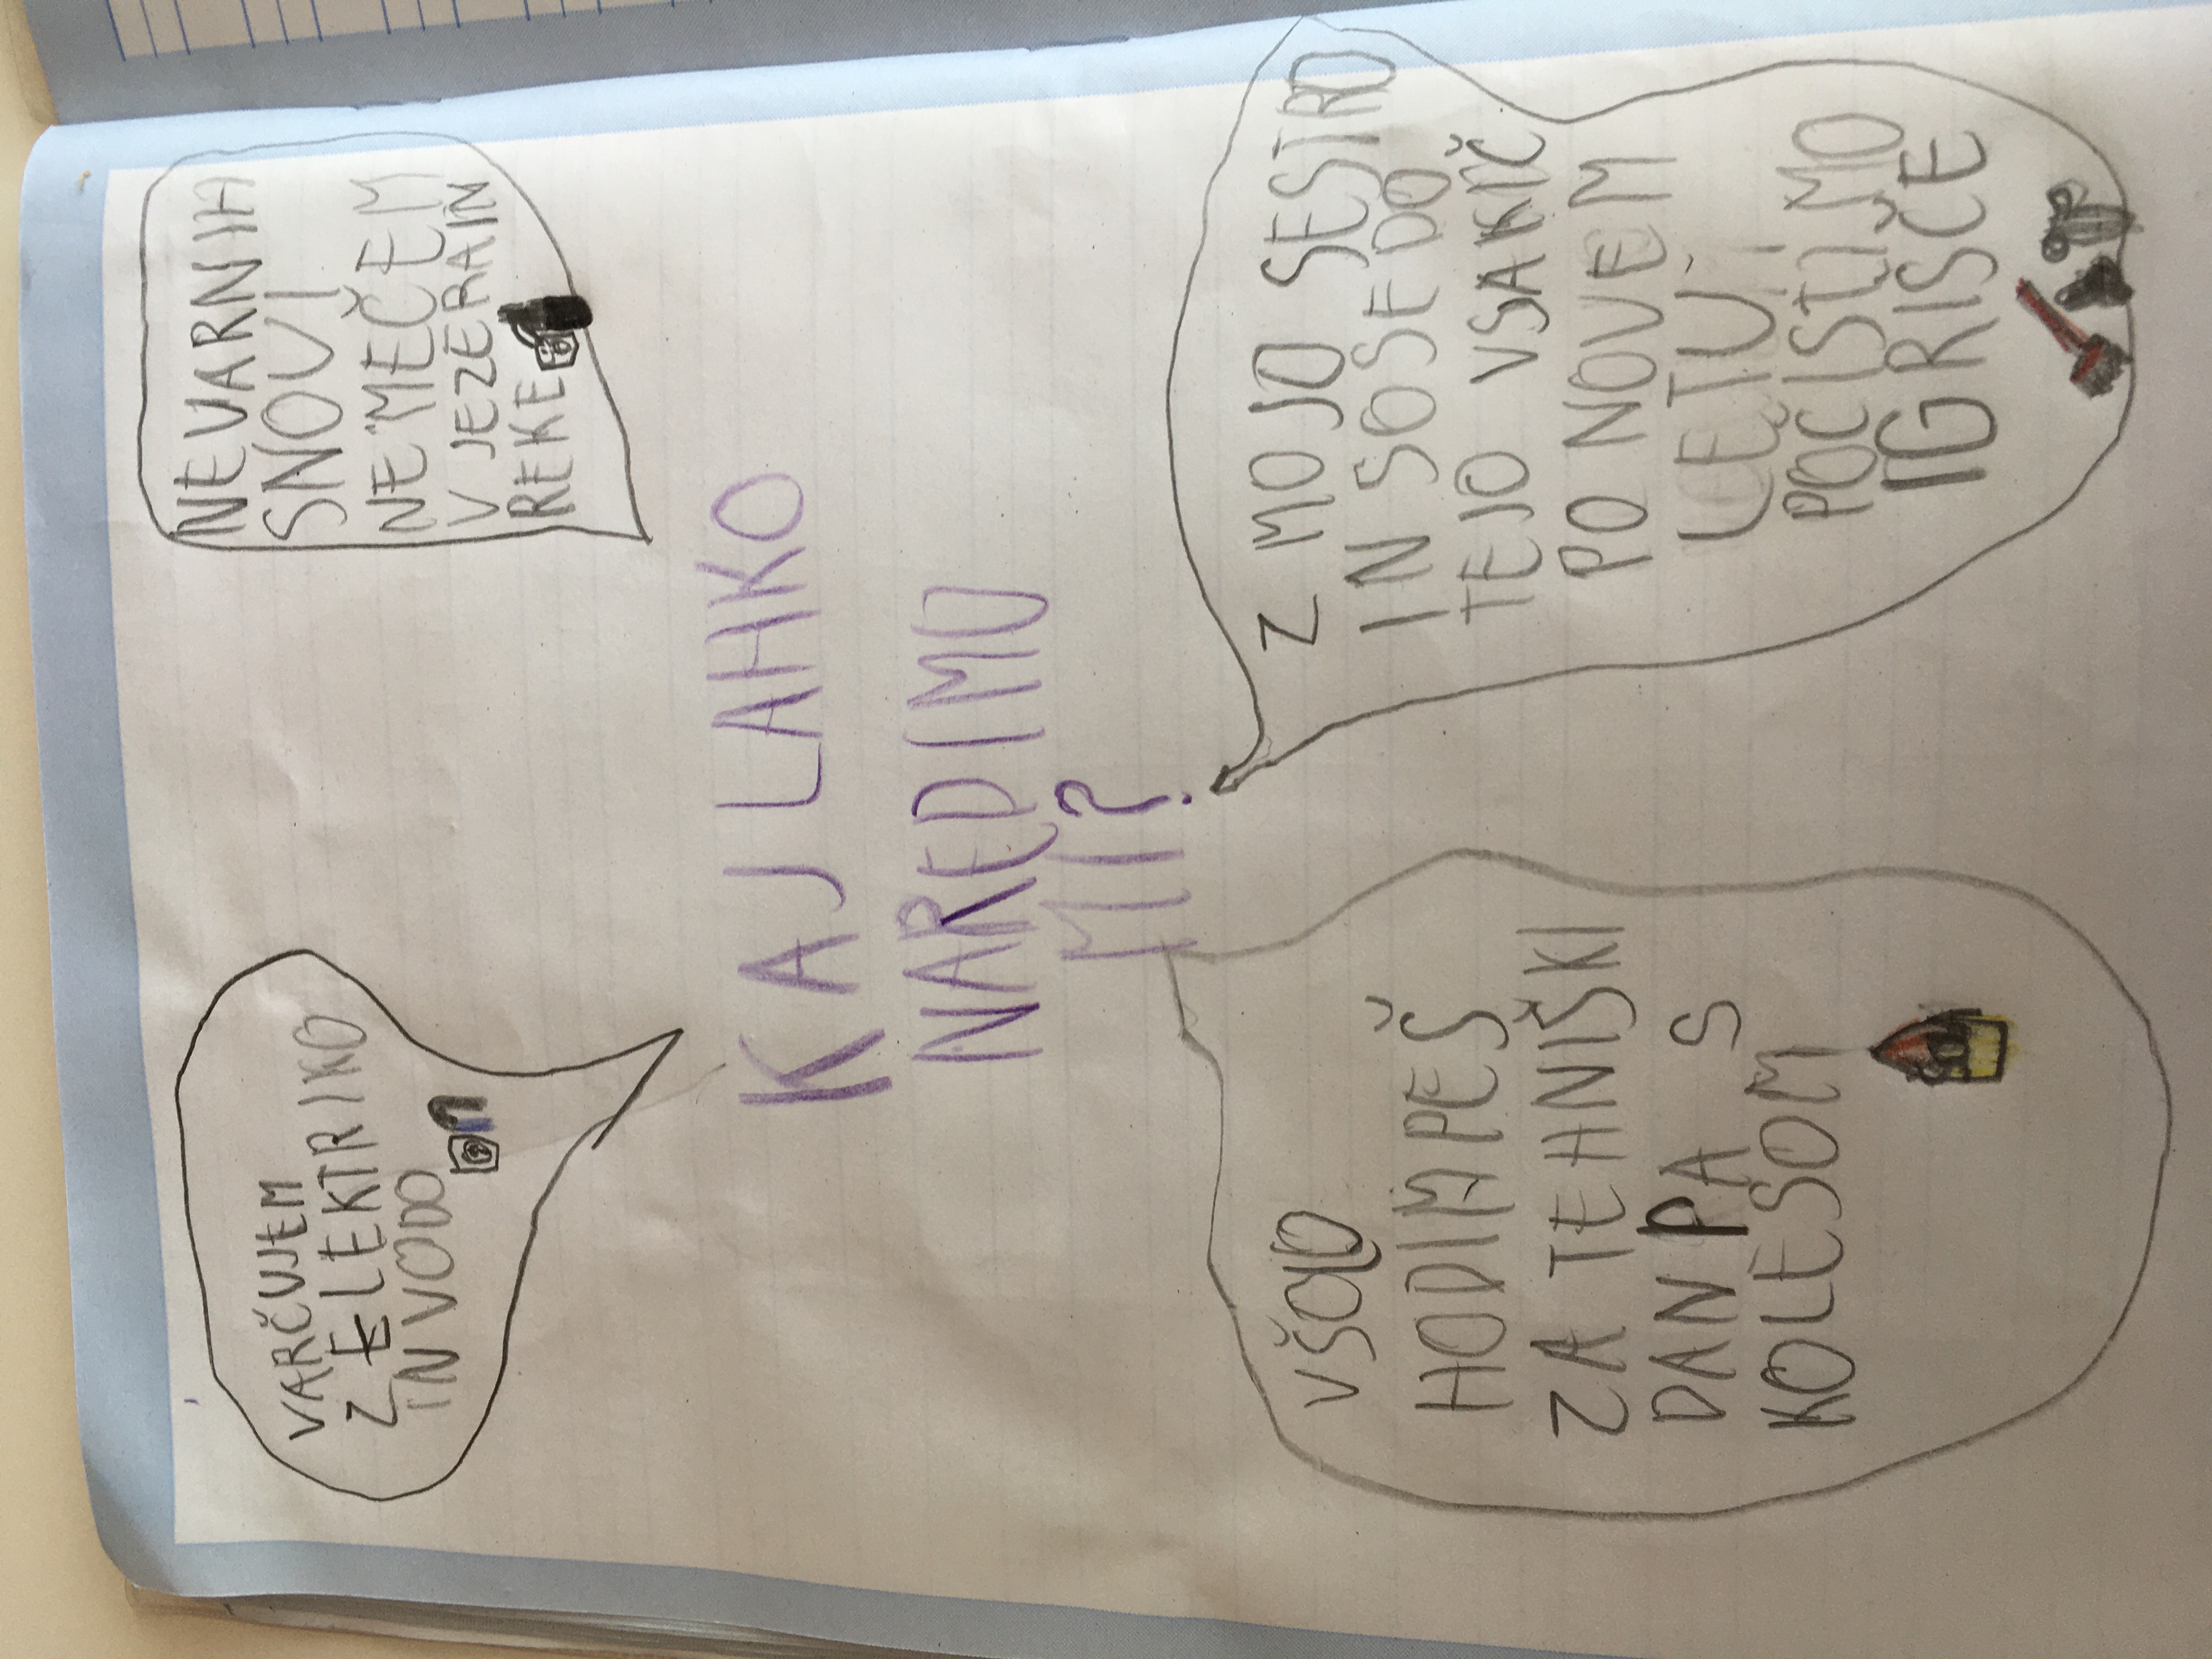 VARČUJEM
Z ELEKTRIKO
IN VODO
NEVARNIH
SNOVI
NE MEČEM
V JEZERA IN
REKE
KAJ LAHKO
NAREDIMO
MI?
VŠOLO
HODIM PEŠ
ZA TEHNIŠKI
DAN PA S
KOLESOM
Z MOJO SESTRO
IN SOSEDO
TEJO VSAKIČ
PO NOVEM
LETU
POČISTIMO
IGRIŠČE